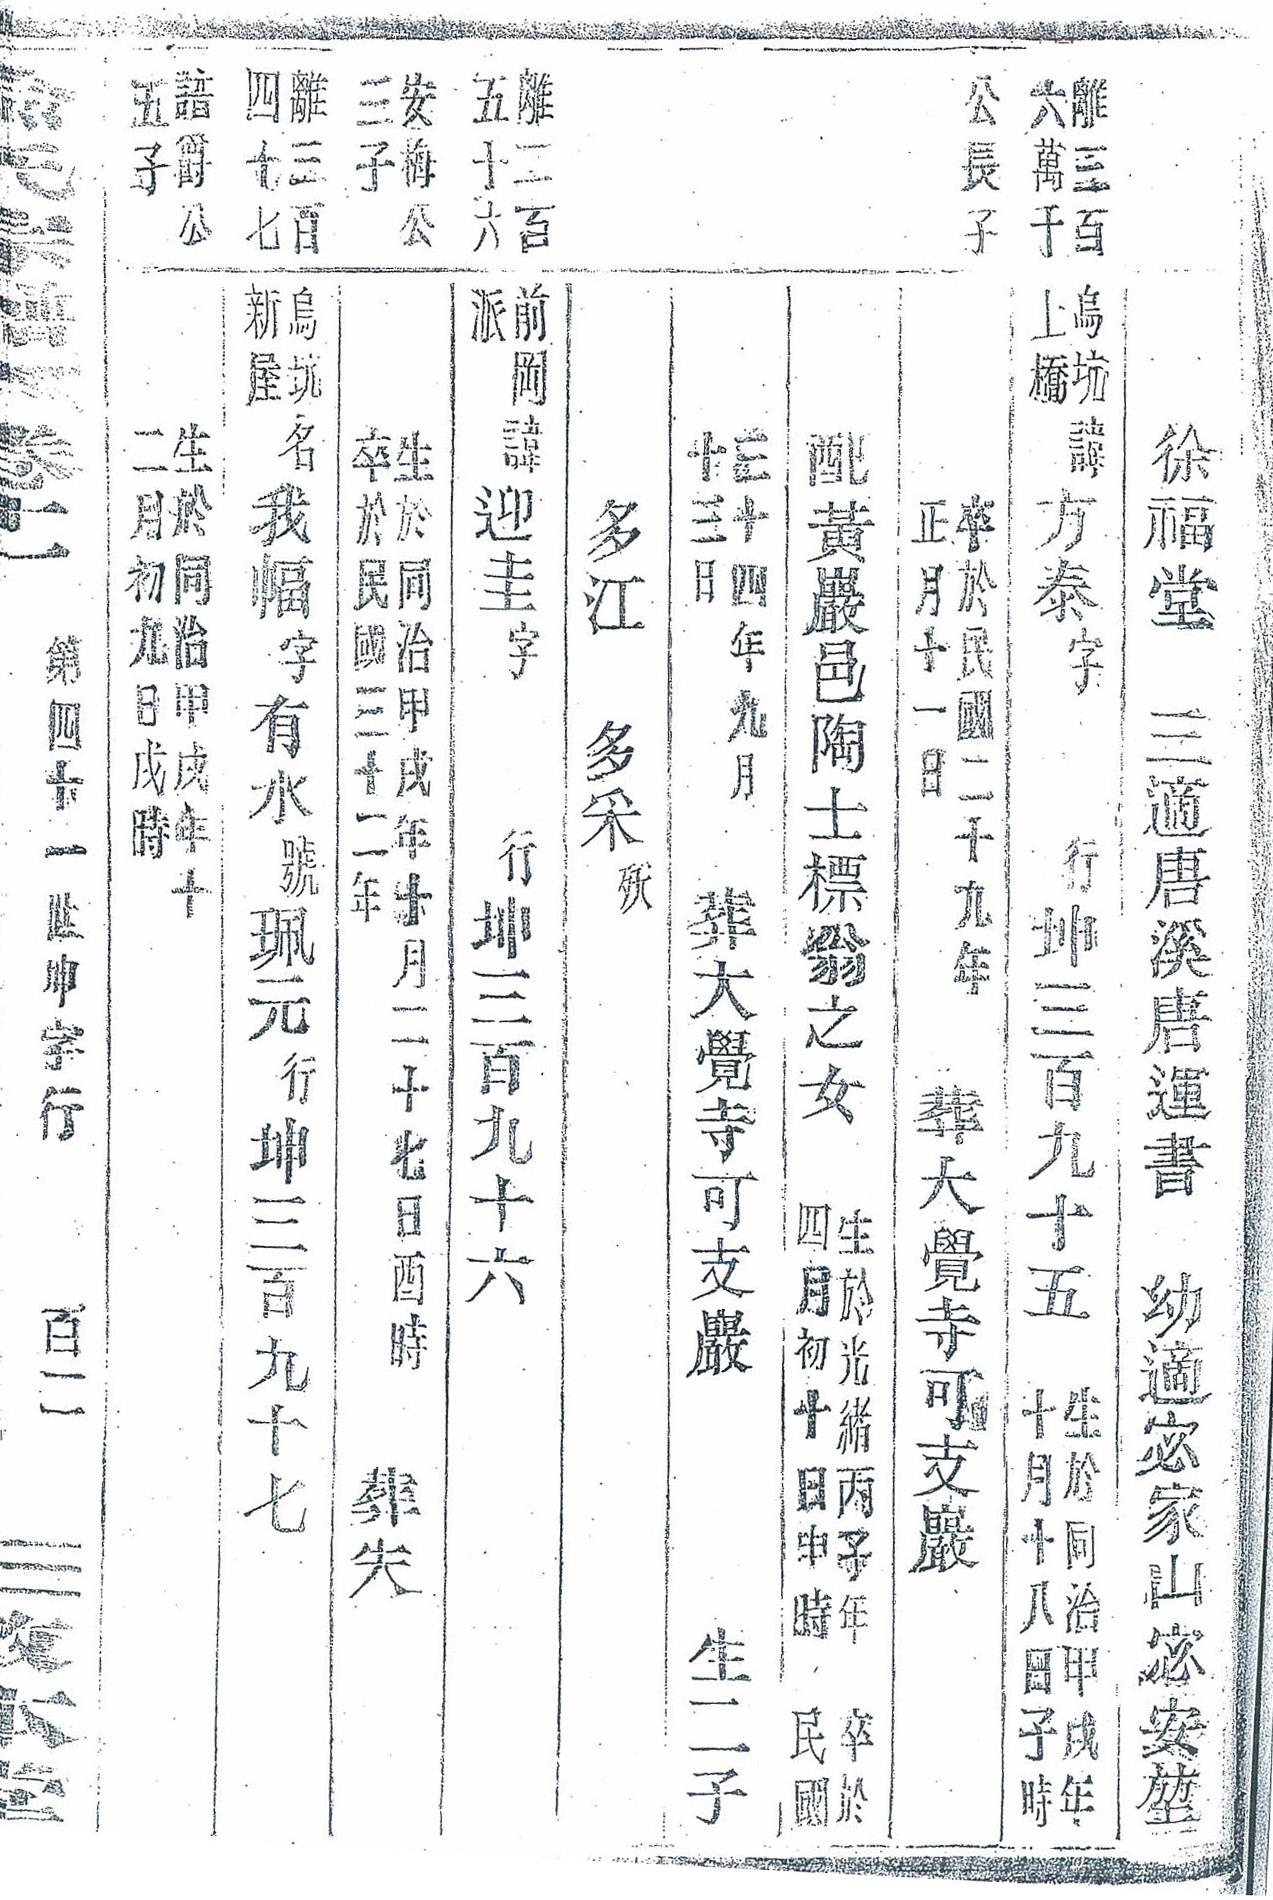 徐福堂　三適唐溪唐運書　幼適宓家山宓安堃
離三百
六萬千
烏坑
上橋
諱方泰字　行坤三百九十五
生於同治甲戌年
十月十八日子時
公長子
卒於民國二十九年
正月十一日
葬大覺寺可支巖
配黃巖邑陶士標翁之女
生於光緒丙子年　卒於
四月初十日申時　民國
三十四年九月
十三日
葬大覺寺可支巖　生二子
多江　多采殀
離二百
五十六
前岡
派
諱迎圭字　行坤三百九十六
安梅公
三子
生於同治甲戌年十月二十七日酉時
卒於民國三十二年
葬失
離三百
四十七
烏坑
新屋
名我幅字有水號珮元行坤三百九十七
諳爵公
五子
生於同治甲戌年十
二月初九日戌時
卷二　第四十一世坤字行　百二